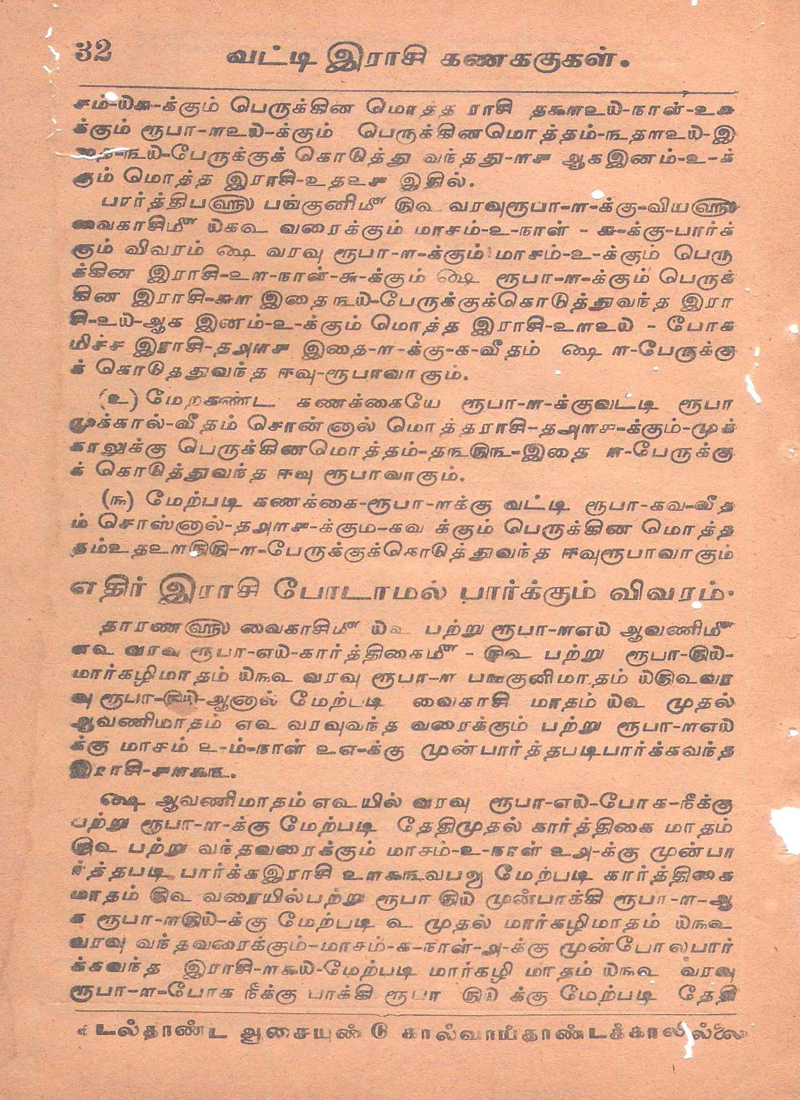 32
வட்டி இராசி கணககுகள்.
சம்-க்கும் பெருக்கின மொத்த ராசி நாள்-உ௬
க்கும் ரூபா-௱௨௰-க்கும் பெருக்கினமொத்தம்-௩௲௱௨௰-இ
பேருக்குக் கொடுத்து வந்தது-௱௪ ஆகஇனம்-உ-க்
கும் மொத்த இராசி-௨௲௨௪ இதில்.
பார்த்திப௵ பங்குனிமீ ௫௳ வரவுரூபா-௱-க்கு-விய௵
வைகாசிமீ ௰௬௳ வரைக்கும் மாசம்-௨-நாள் - ௬-க்கு-பார்க்
கும் விவரம் ௸ வரவு ரூபா-௱-க்கும் மாசம்-௨-க்கும் பெரு
க்கின இராசி-௨௱-நாள்-௬-க்கும் ௸ ரூபா-௱-க்கும் பெருக்
கின இராசி-௬௱ இதை௩௰-பேருக்குக்கொடுத்துவந்த இரா
சி-௨௰-ஆக இனம்-௨-க்கும் மொத்த இராசி-௨௱௨௰ - போக
மிச்ச இராசி-௲௮௱௪ இதை-௱-க்கு-க-வீதம் ௸ ௱-பேருக்கு
க் கொடுத்துவந்த ஈவு-ரூபாவாகும்.
(௨) மேற்கண்ட கணக்கையே ரூபா-௱-க்குவட்டி ரூபா
முக்கால்-வீதம் சொன்னால் மொத்தராசி-௲௮௱௪-க்கும்-முக்
காலுக்கு பெருக்கினமொத்தம்-௲௩௱௫௩-இதை ௱-பேருக்கு
க் கொடுத்துவந்த ஈவு ரூபாவாகும்.
(௩) மேற்படி கணக்கை-ரூபா-௱க்கு வட்டி ரூபா-கவ-வீத
ம் சொஸ்னால்-௲௮௱௪-க்கும-கவ க்கும் பெருக்கின மொத்த
௱-பேருக்குக்கொடுத்துவந்த ஈவுரூபாவாகும்
எதிர் இராசி போடாமல் பார்க்கும் விவரம்.
தாரண௵ வைகாசிமீ ௰௳ பற்று ரூபா-௱௭௰ ஆவணிமீ
௭௳ வரவு ரூபா-௭௰-கார்த்திகைமீ - ௫௳ பற்று ரூபா-௫௰-
மார்கழிமாதம் ௰௩௳ வரவு ரூபா-௱ பஙகுனிமாதம் ௰௫௳வர
வு ரூபா-௫௰-ஆனால் மேற்படி வைகாசி மாதம் ௰௳ முதல்
ஆவணிமாதம் ௭௳ வரவுவந்த வரைக்கும் பற்று ரூபா-௱௭௰
க்கு மாசம் ௨-ம்-நாள் ௨௭-க்கு முன்பார்த்தபடிபார்க்கவந்த
இராசி-௪௱௯௩.
௸ ஆவணிமாதம் ௭௳யில் வரவு ரூபா-௭௰-போக-நீக்கு
பற்று ரூபா-௱-க்கு மேற்படி தேதிமுதல் கார்த்திகை மாதம்
௫௳ பற்று வந்தவரைக்கும் மாசம்-௨-நாள் ௨௮-க்கு முன்பா
ர்த்தபடி பார்க்கஇராசி மேற்படி கார்த்திகை
மாதம் ௫௳ வரையில்பற்று ரூபா ௫௰ முன்பாக்கி ரூபா-௱-ஆ
க ரூபா-௱௫௰-க்கு மேற்படி ௳ முதல் மார்கழிமாதம் ௰௩௳
வரவு வந்தவரைக்கும்-மாசம்-க-நாள்-௮-க்கு முன்போலபார்
க்கவந்த இராசி-௱௯௰-மேற்படி மார்கழி மாதம் ௰௩௳ வரவு
ரூபா-௱-போக நீக்கு பாக்கி ரூபா ௫௰ க்கு மேற்படி தேதி
கடல்தாண்ட ஆசையுண்டு கால்வாய்தாண்டக்காலில்லை